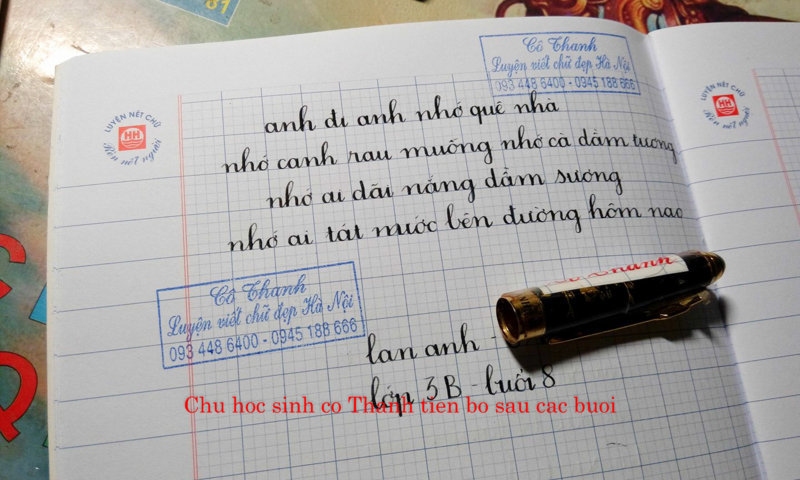 81
Cô Thanh
Luyện viết chữ đẹp Hà Nội
093 448 6400 - 0945 188 666
LUYỆN NÉT CHỮ
HH
Rèn nết người
LUYỆN NÉT CHỮ
HH
Rèn nết người
anh đi anh nhớ quê nhà
nhớ canh rau muống nhớ cà dầm tương
nhớ ai dãi nắng dầm sương
nhớ ai tát nước bên đường hôm nao
Cô Thanh
Luyện viết chữ đẹp Hà Nội
093 448 6400 - 0945 188 666
Thanh
lan anh -
lớp 3B - buổi 8
Chu hoc sinh co Thanh tien bo sau cac buoi